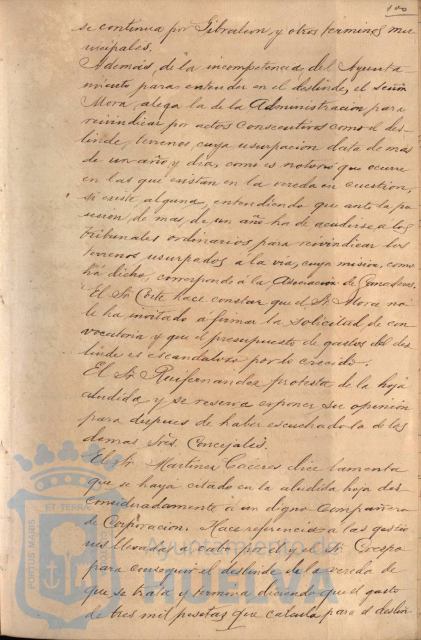 100
se continua por Gibraleon, y otros terminos mu-
nicipales.
Además de la incompetencia del Ayunta-
miento para entender en el deslinde, el Señor
Mora, alega la de la Administracion para
reivindicar por actos consecutivos como el des-
linde, terrenos, cuya usurpacion data de más
de un año y dia, como es notorio que ocurre
en las que existan en la vereda en cuestion,
si existe alguna, entendiendo que ante la po-
sesion de mas de un año ha de acudirse a los
tribunales ordinarios para reivindicar los
terrenos usurpados a la via, cuya mision, como
ha dicho, corresponde a la Asociacion de Ganaderos.
El Sr. Corte hace constar que el Sr. Mora no
le ha invitado a firmar la solicitud de con-
vocatoria y que el presupuesto de gastos del des-
linde es escandaloso por lo crecido.
El Sr. Ruifernandez protesta de la hoja
aludida y se reserva exponer su opinión
para despues de haber escuchado la de los
demas Sres. Concejales.
El Sr. Martinez Cáceres dice lamenta
que se haya citado en la aludida hoja des-
consideradamente a un digno Compañero
de Corporacion. Hace referencia a las gestio-
nes llevadas a cabo por el Sr. Crespo
para conseguir el deslinde de la vereda de
que se trata y termina diciendo que el gasto
de tres mil pesetas que calcula para el deslin-
PORTUS MARIS
ET TERRAE
Ayuntamiento de
HUELVA